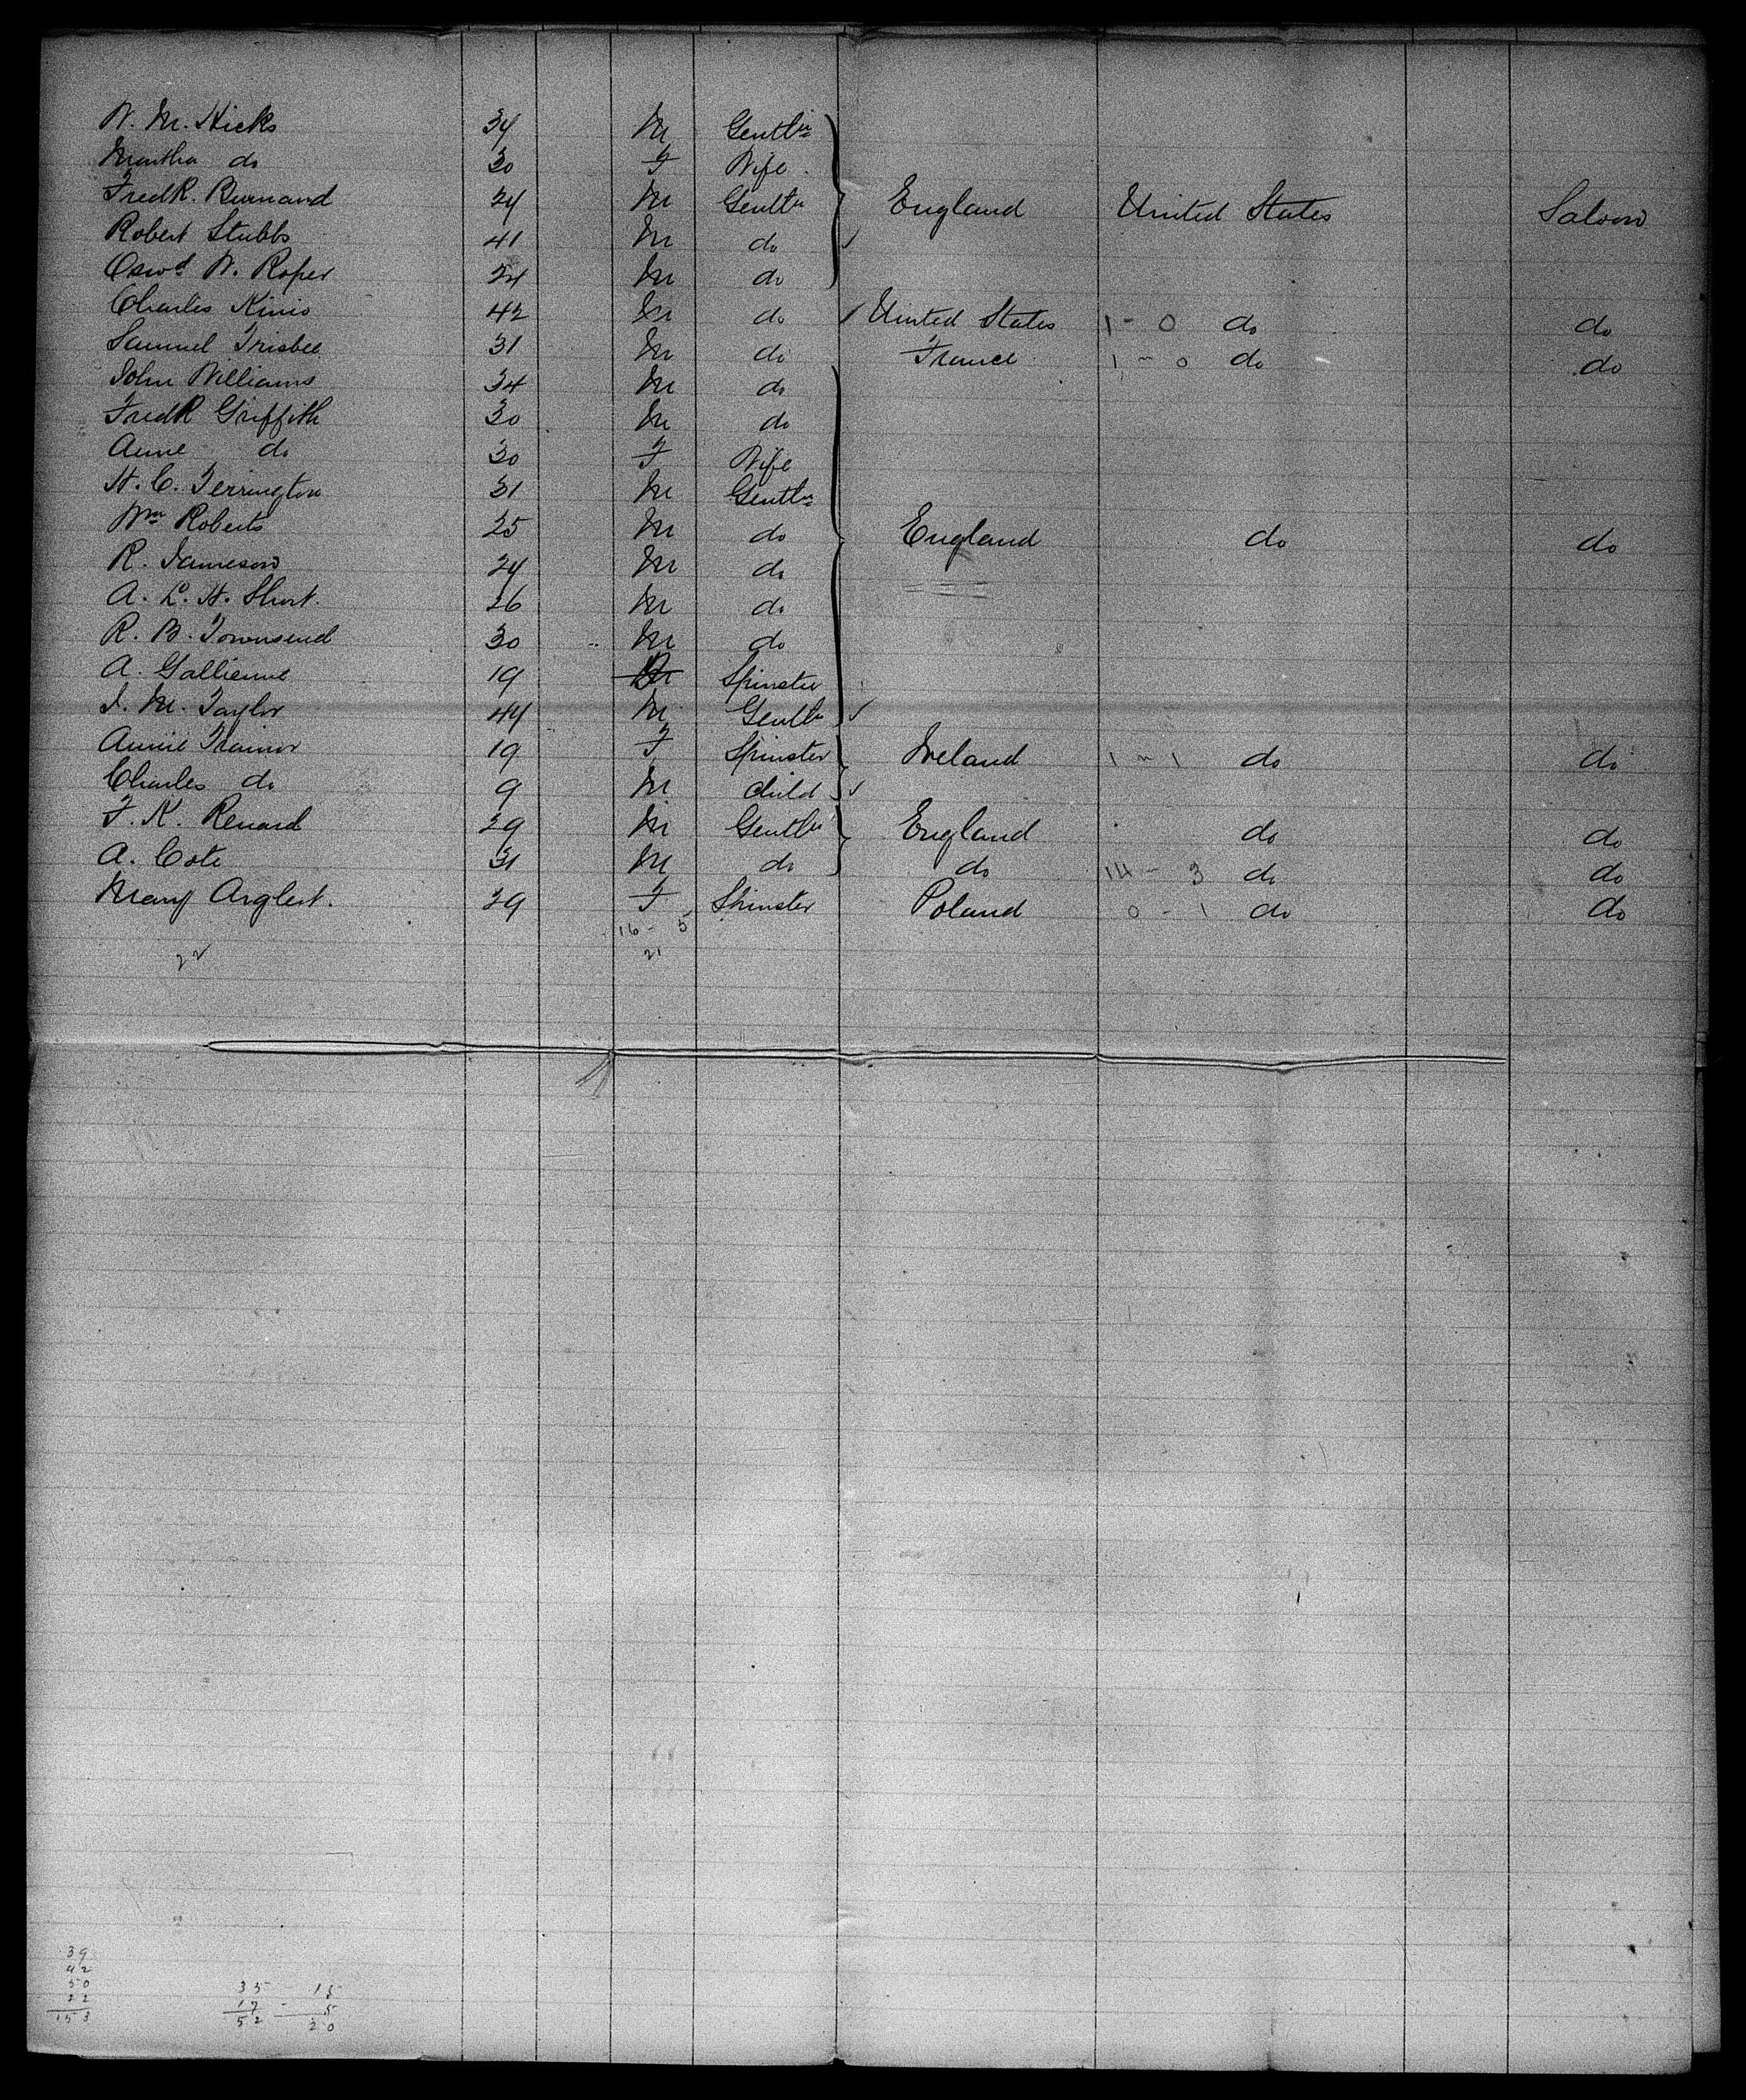 W. M. Hicks 34 M Gentln
Martha do 30 F Wife
Fredk. Burnand 24 M Gentln England United States Saloon
Robert Stubbs 41 M do
Oswd W. Roper 24 M do
Charles 42 M do United States 1 - 0 do do
Samuel Frisbee 31 M do France 1 - 0 do do
John Williams 34 M do
Fredk Griffith 30 M do
Anne do 30 F Wife
H. C. Terrington 31 M Gentln
Wm Roberts 25 M do England do do
R. Jameson 24 M do
A. L. H. Short. 26 M do
R. B. Townsend 30 M do
A. Gallienne 19 Spinster
J. M. Taylor 44 M Gentln
Annie Trainor 19 F Spinster Ireland 1 - 1 do do
Charles do 9 M Child
F. K. Renard 29 M Gentln England do do
A. Cote 31 M do do 14 - 3 do do
Mary 29 F Spinster Poland 0 - 1 do do
16 - 5
22 21
39
42
50
22
153
35 - 15
17 - 5
52 - 20